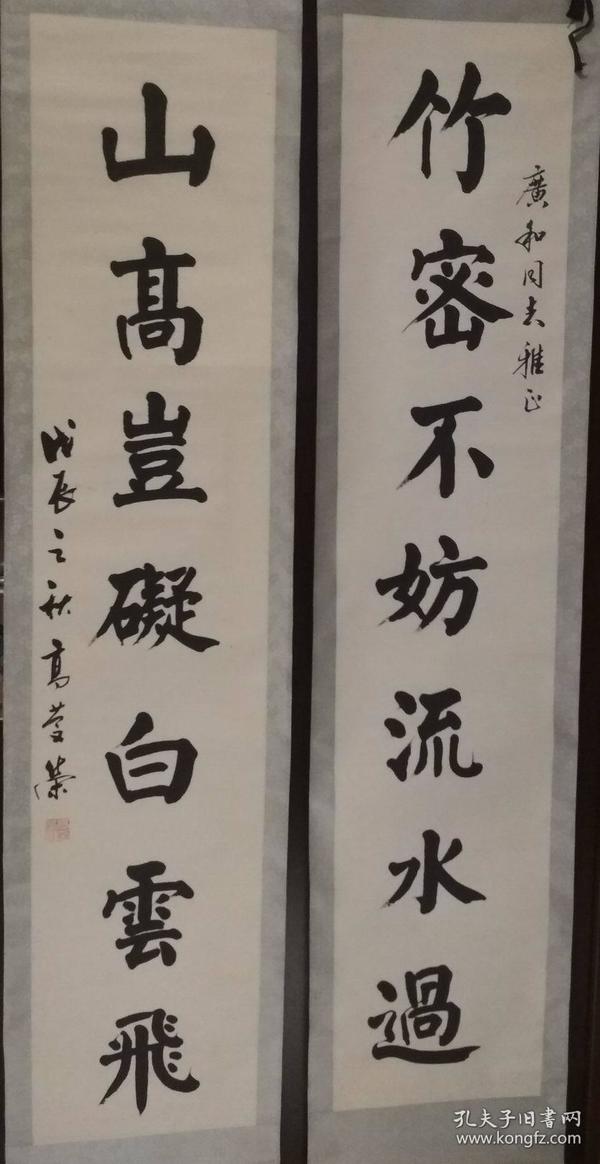 竹密不妨流水過
廣和同志雅正
山高豈礙白雲飛
戊辰之秋高蔓榮
孔夫子旧書网
www.kongfz.com